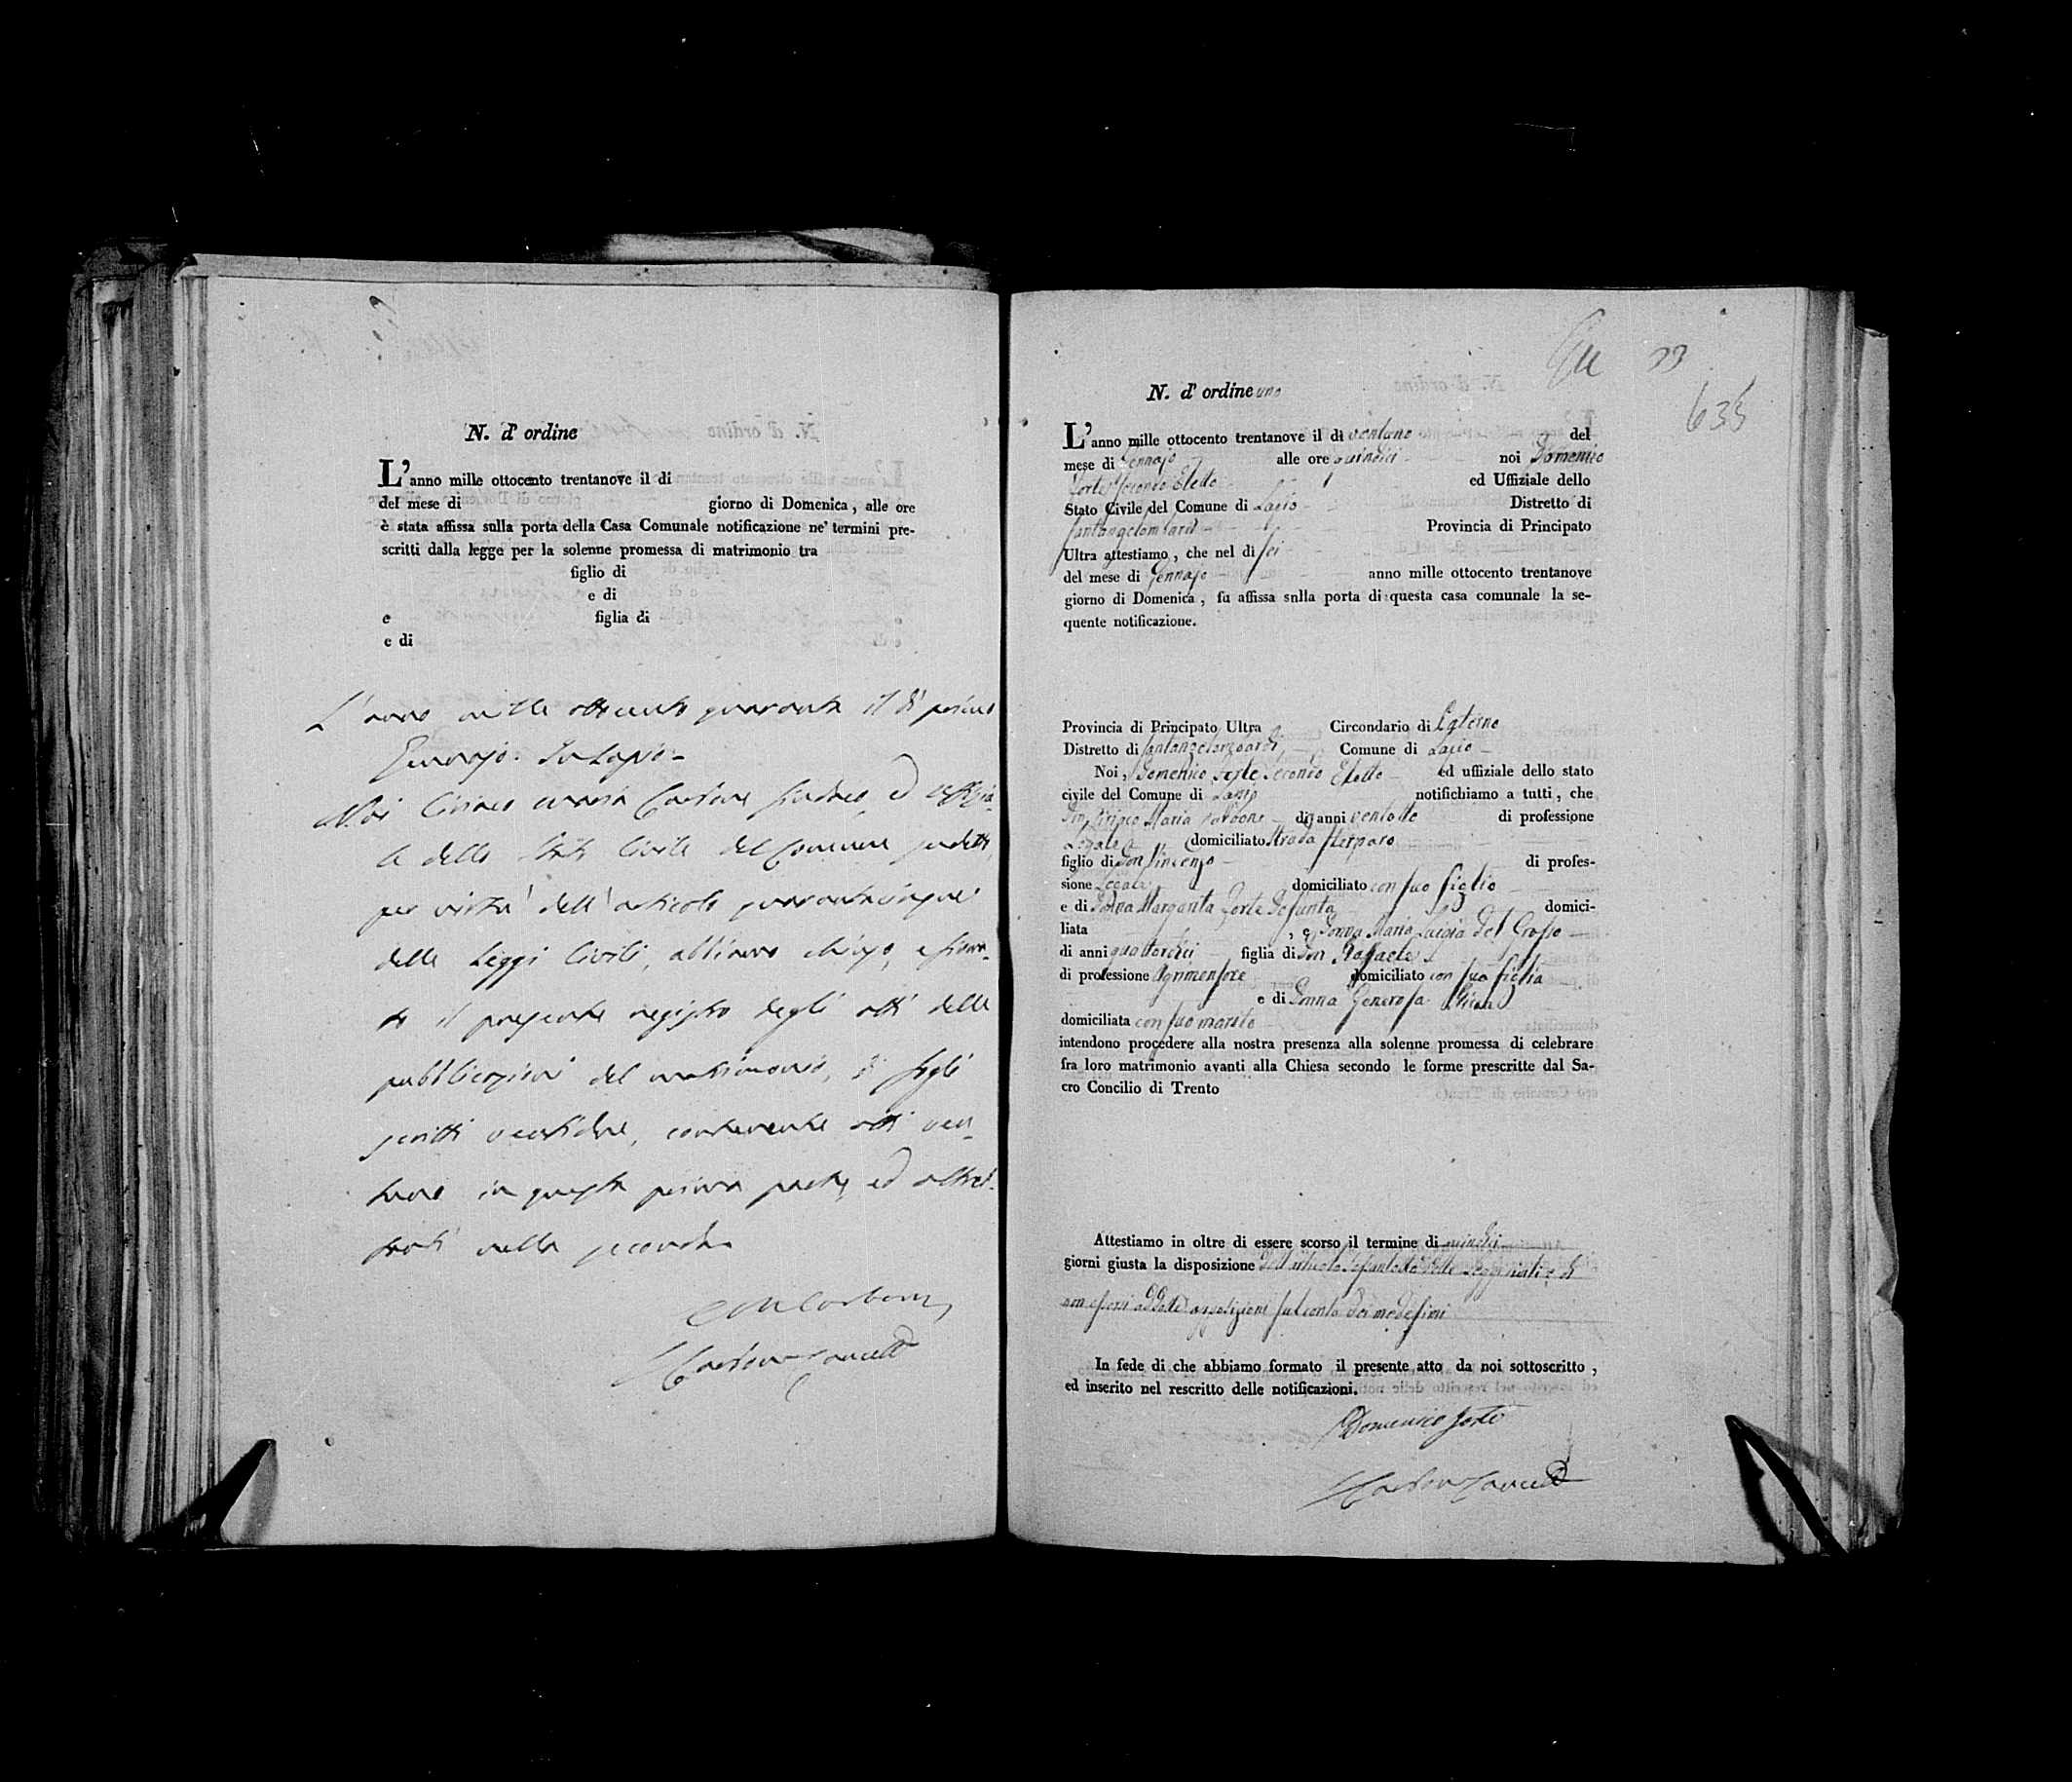 N. d' ordine
L'anno mille ottocento trentanove il di
del mese di giorno di Domenica, alle ore
è stata affissa sulla porta della Casa Comunale notificazione ne' termini pre-
scritti dalla legge per la solenne promessa di matrimonio tra
figlio di
e di
e figlia di
e di
L'anno mille ottocento quaranta il dì primo
Gennajo. In Lapio-
Noi Ciriaco Maria Carbone Sindaco, ed uffizia-
le dello Stato Civile del Comune sudetto,
per virtù dell'articolo quarantacinque
delle Leggi Civili, abbiamo chiuso, e firma-
to il presente registro degli atti delle
pubblicazioni del matrimonio, di fogli
scritti ventidue, contenente atti ven-
tuno in questa prima parte, ed altret-
tanti nella seconda
CM Carbone
N. d' ordine uno
L'anno mille ottocento trentanove il di ventuno del
mese di Gennajo alle ore quindici noi Domenico
Forte Secondo Eletto ed Uffiziale dello
Stato Civile del Comune di Lapio Distretto di
Santangelombardi Provincia di Principato
Ultra attestiamo, che nel dì sei
del mese di Gennajo anno mille ottocento trentanove
giorno di Domenica, fu affissa sulla porta di questa casa comunale la se-
quente notificazione.
Provincia di Principato Ultra Circondario di Paterno
Distretto di Santangelombardi Comune di Lapio
Noi, Domenico Forte Secondo Eletto ed uffiziale dello stato
civile del Comune di Lapio notifichiamo a tutti, che
Don Ciriaco Maria Carbone di anni ventotto di professione
Legale domiciliato Strada
figlio di Don Vincenzo di profes-
sione Legale domiciliato con suo figlio
e di Donna Margarita Forte defunta domici-
liata , e Donna Maria Luigia Del Grosso
di anni quattordici figlia di Don Raffaele
di professione Agrimensore domiciliato con sua figlia
e di Donna Generosa
domiciliata con suo marito
intendono procedere alla nostra presenza alla solenne promessa di celebrare
fra loro matrimonio avanti alla Chiesa secondo le forme prescritte dal Sa-
cro Concilio di Trento
Attestiamo in oltre di essere scorso il termine di quindici
giorni giusta la disposizione dell'articolo sessantotto delle Leggi Civili e di
non essersi addotte opposizioni sul conto dei medesimi
In fede di che abbiamo formato il presente atto da noi sottoscritto,
ed inserito nel rescritto delle notificazioni.
Domenico Forte